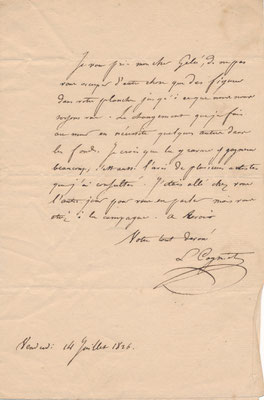 Je vous prie mon cher Gelé, de ne pas
vous occuper d'autre chose que des figures
dans votre planche jusqu'à ce que nous nous
voyons. Le changement que je fais
au mur en nécessite quelques autres dans
les fonds. Je crois que la gravure y gagnera
beaucoup, c'est aussi l'avis de plusieurs artistes
que j'ai consultés. J'étais allé chez vous
l'autre jour pour vous en parler mais vous
étiez à la campagne. au revoir
Votre tout dévoué
L. Cogniet
Vendredi 14 Juillet 1826.